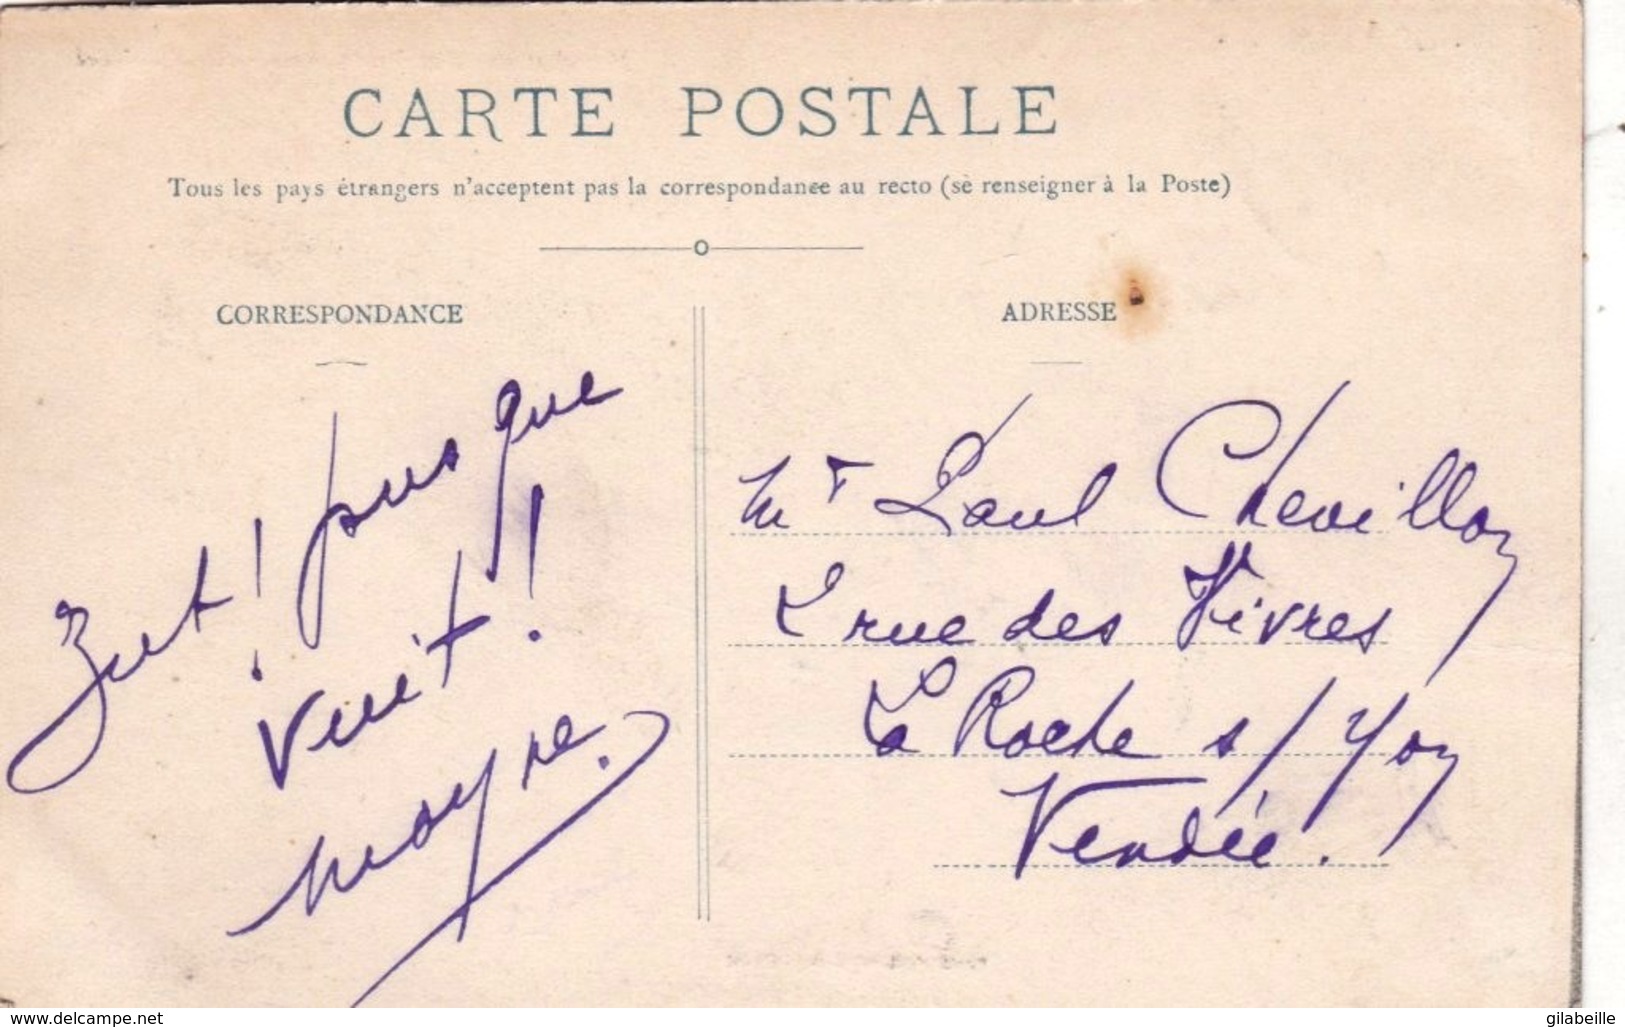 CARTE POSTALE
Tous les pays étrangers n'acceptent pas la correspondance au recto (se renseigner à la Poste)
CORRESPONDANCE
Zut! pus que
vuit!
ADRESSE
Mr Paul Chevillon
rue des Vivres
La Roche s/ Yon
Vendée.
www.delcampe.net
gilabeille